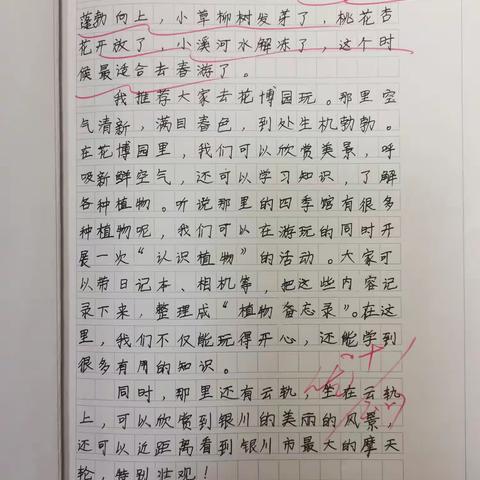 蓬勃向上，小草柳树发芽了，桃花杏
花开放了，小溪河水解冻了，这个时
候最适合去春游了。
我推荐大家去花博园玩。那里空
气清新，满目春色，到处生机勃勃。
在花博园里，我们可以欣赏美景，呼
吸新鲜空气，还可以学习知识，了解
各种植物。听说那里的四季馆有很多
种植物呢，我们可以在游玩的同时开
展一次“认识植物”的活动。大家可
以带日记本、相机等，把这些内容记
录下来，整理成“植物备忘录”。在这
里，我们不仅能玩得开心，还能学到
很多有用的知识。
同时，那里还有云轨，坐在云轨
上，可以欣赏到银川的美丽的风景，
还可以近距离看到银川市最大的摩天
轮，特别壮观！